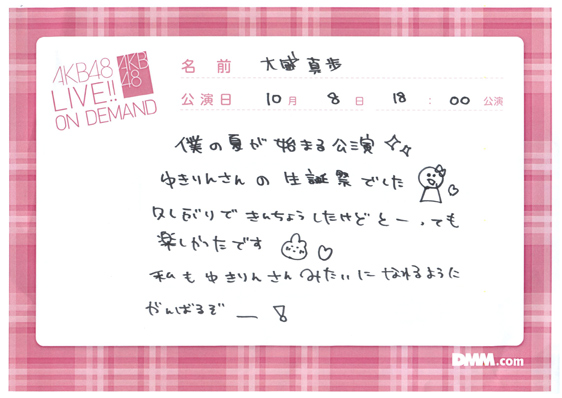 AKB48
LIVE!!
ON DEMAND
AKB
48
名 前 大盛 真歩
公演日 10月 8日 18:00 公演
僕の夏が始まる公演
ゆきりんさんの生誕祭でした
久しぶりできんちょうしたけどとーっても
楽しかったです
私もゆきりんさんみたいになれるように
がんばるぞー!
DMM.com